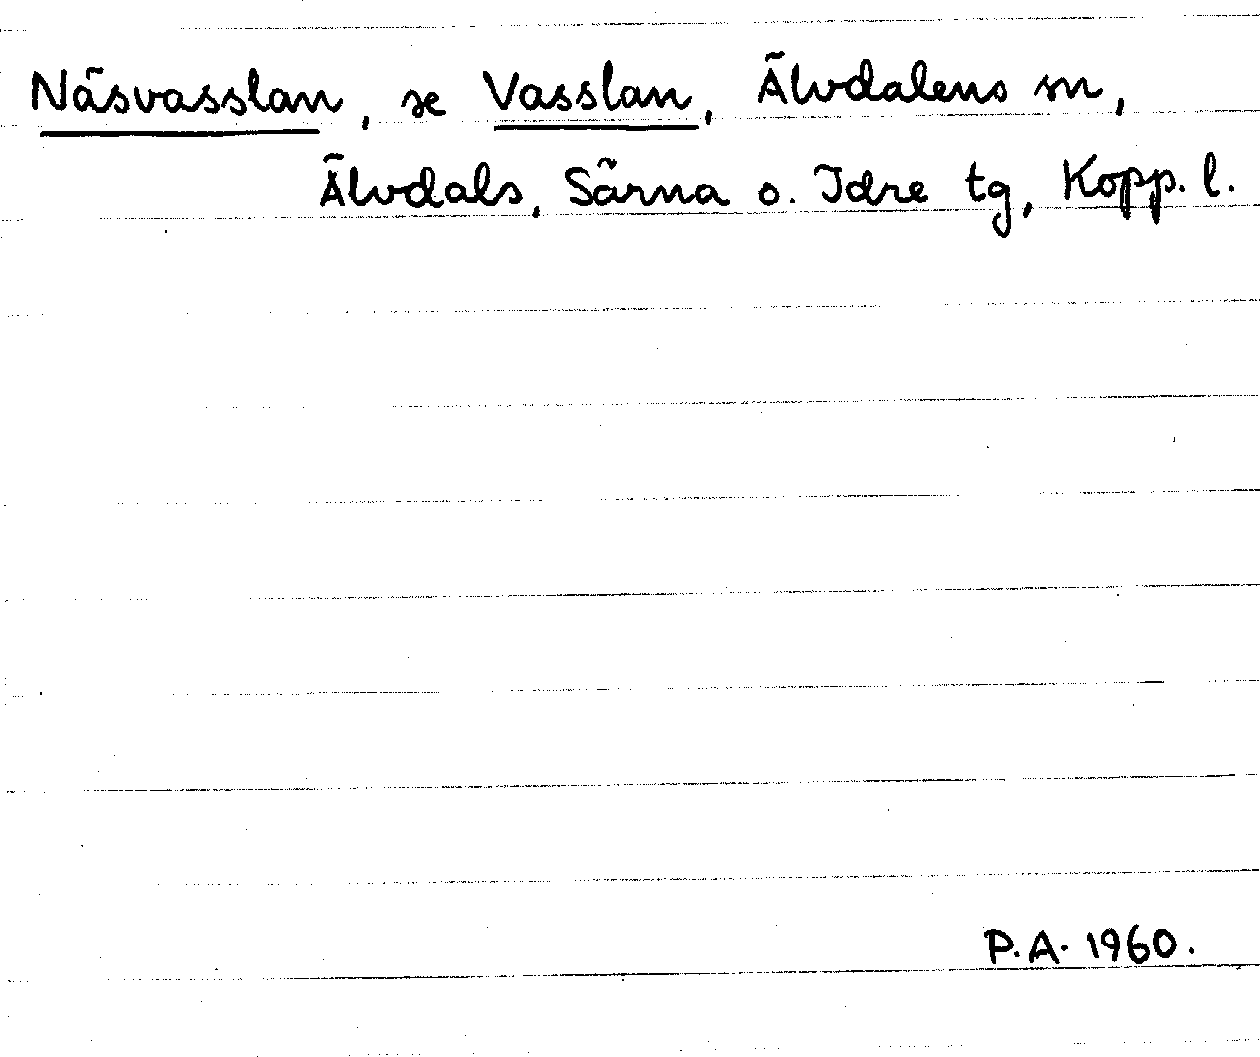 Näsvasslan, se Vasslan, Älvdalens sn,
Älvdals, Särna o. Idre tg, Kopp. l.
P.A. 1960.